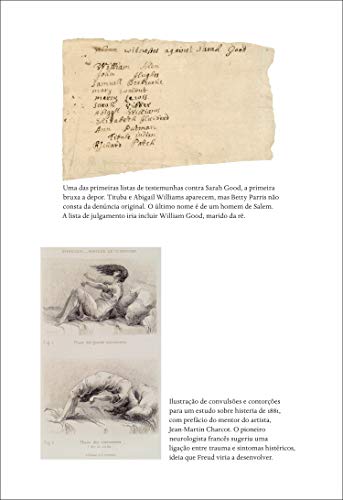 witnesses against Sarah Good
William Allen
John Hughes
Samuell
mary
mercy Lewis
Sarah Vibber
Abigall Williams
Elizabeth Hubbard
Ann Putman
Titube indian
Richard Patch
Uma das primeiras listas de testemunhas contra Sarah Good, a primeira
bruxa a depor. Tituba e Abigail Williams aparecem, mas Betty Parris não
consta da denúncia original. O último nome é de um homem de Salem.
A lista de julgamento iria incluir William Good, marido da ré.
Fig. 1
Phase des grands mouvements
Fig. 2
Phase des contorsions
Ilustração de convulsões e contorções
para um estudo sobre histeria de 1881,
com prefácio do mentor do artista,
Jean-Martin Charcot. O pioneiro
neurologista francês sugeriu uma
ligação entre trauma e sintomas histéricos,
ideia que Freud viria a desenvolver.